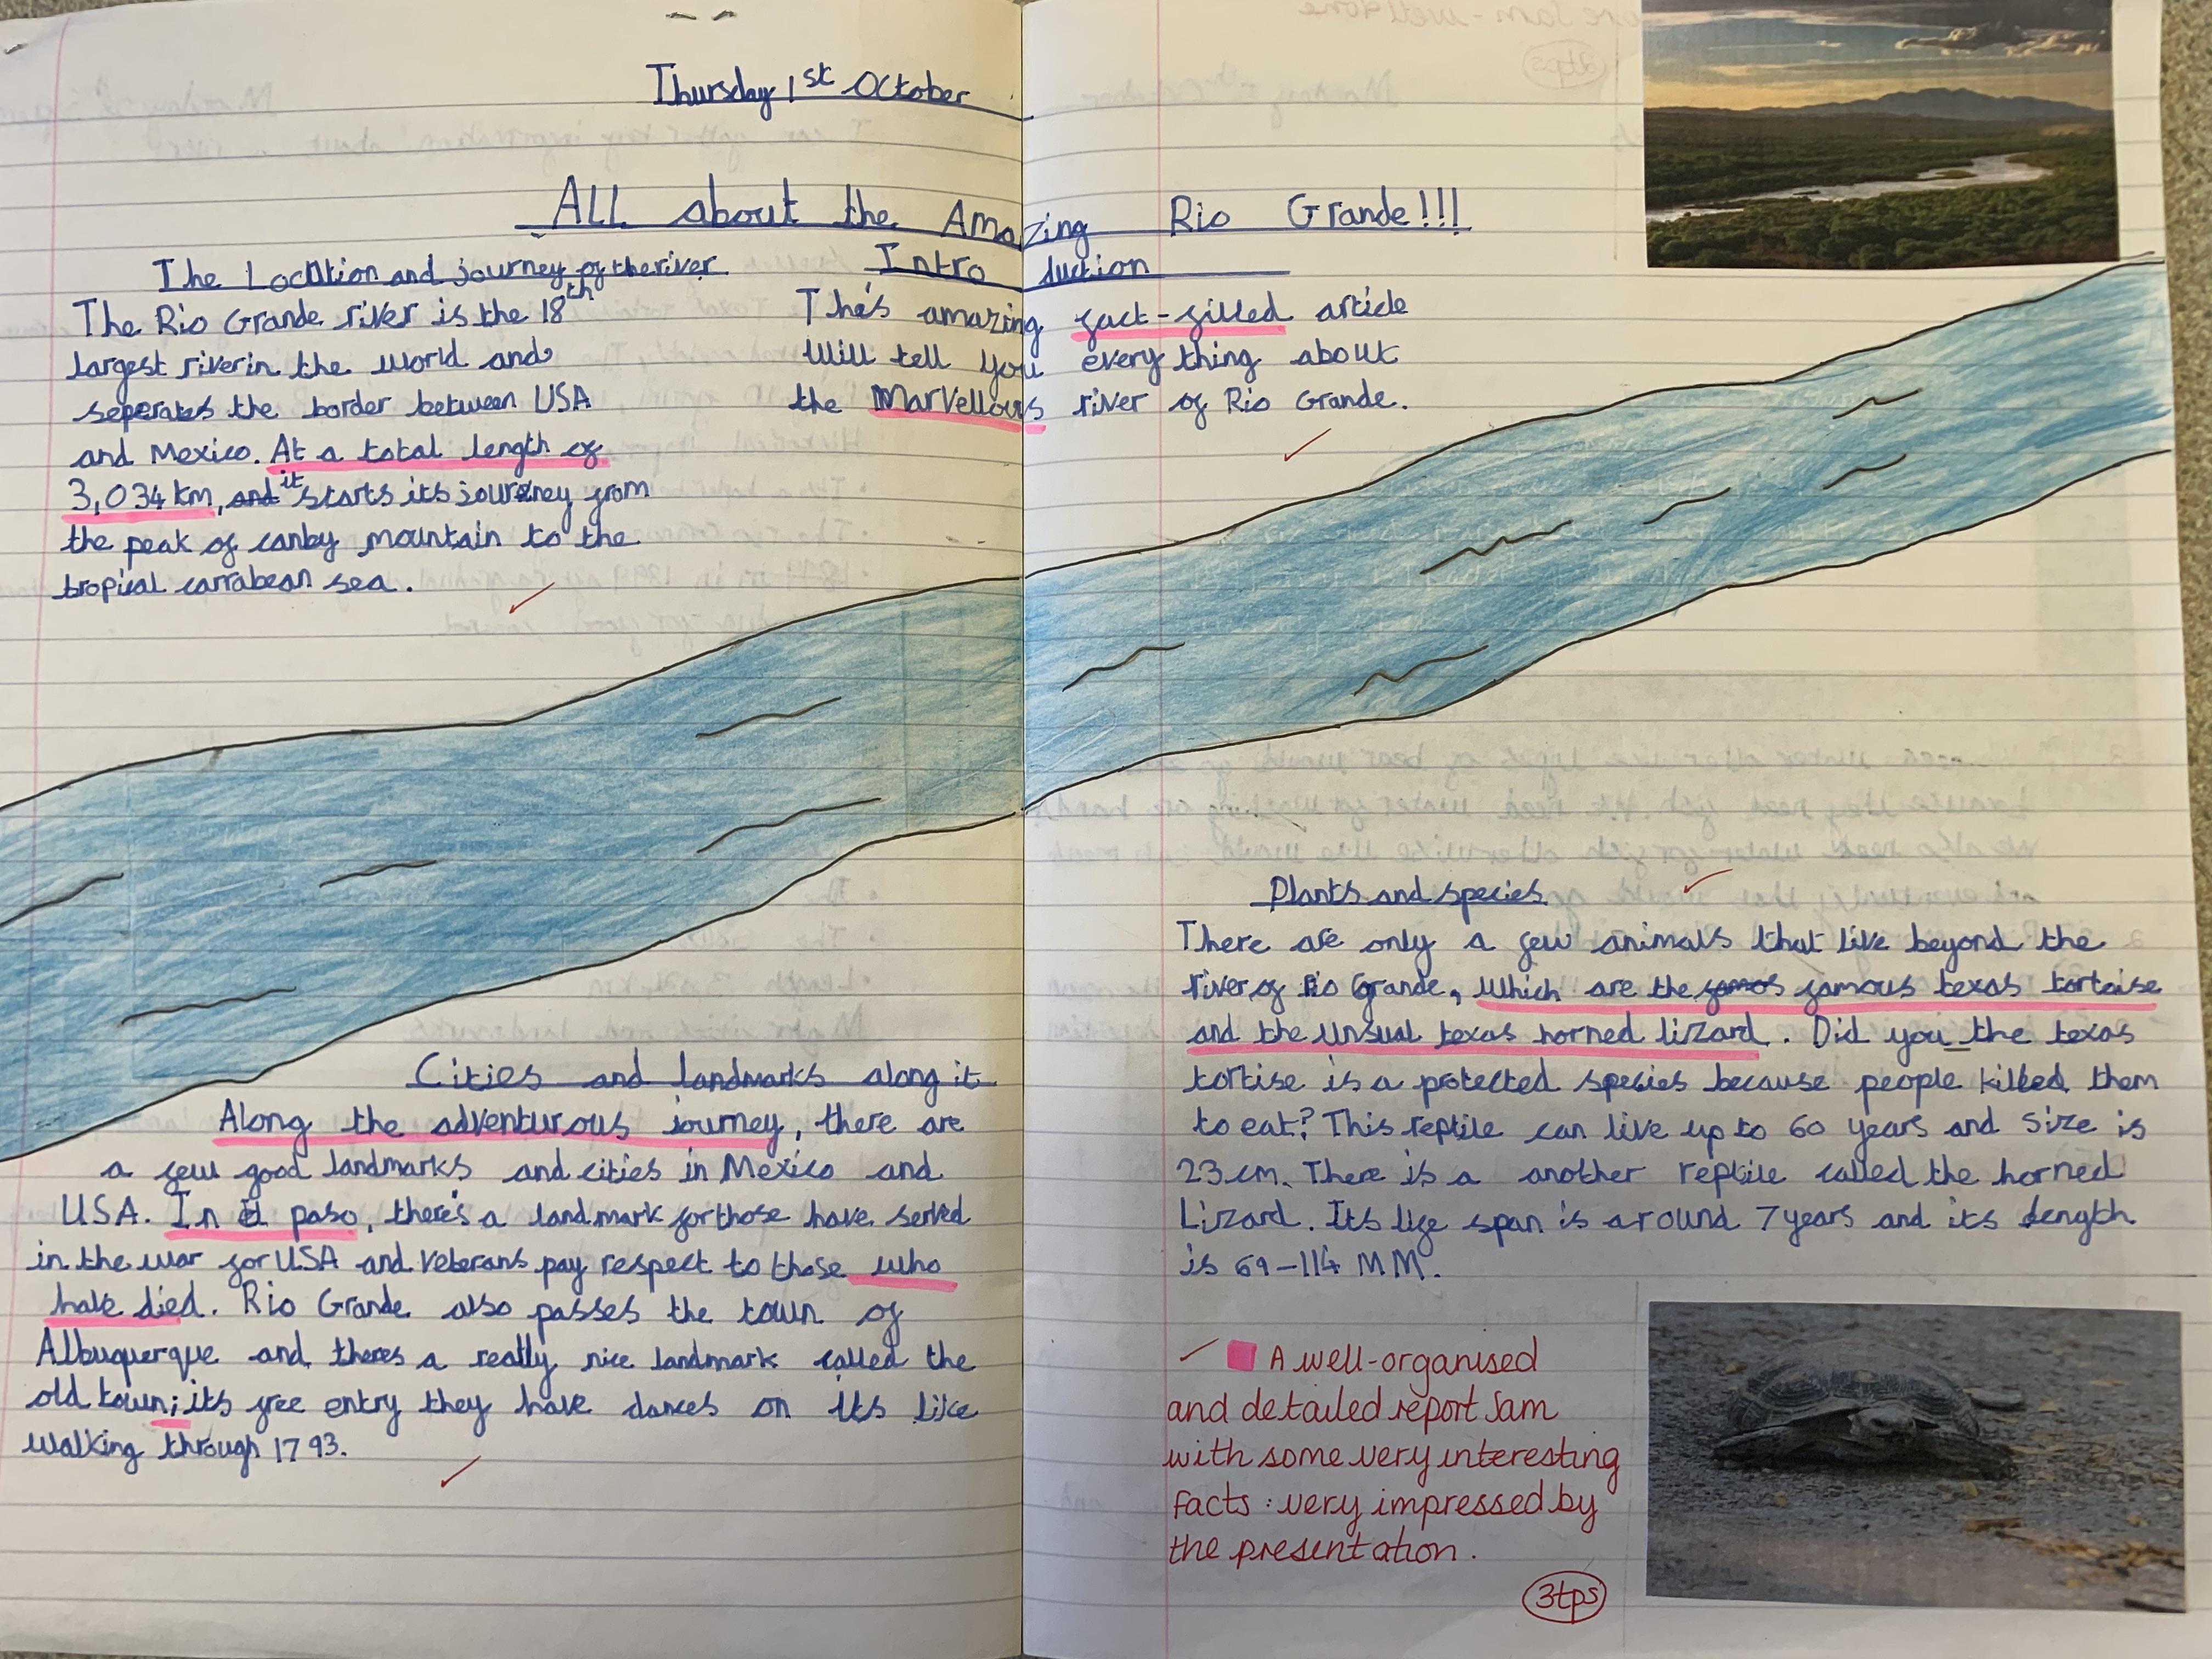 Thursday 1st October
All about the Amazing Rio Grande!!!
The Location and journey of the river
The Rio Grande river is the 18th
largest river in the world and
seperates the border between USA
and Mexico. At a total length of
3,034 km, and it starts its journey from
the peak of canby mountain to the
tropical carrabean sea.
Introduction
The's amazing fact-filled article
Will tell you every thing about
the Marvellous river of Rio Grande.
Cities and landmarks along it
Along the adventurous journey, there are
a few good landmarks and cities in Mexico and
USA. In el paso, there's a landmark for those have served
in the war for USA and veterans pay respect to those who
have died. Rio Grande also passes the town of
Albuquerque and theres a really nice landmark called the
old town; its free entry they have dances on its like
walking through 1793.
Plants and species
There are only a few animals that live beyond the
river of Rio Grande, which are the famos famous texas tortoise
and the unsual texas horned lizard. Did you the texas
tortise is a protected species because people killed them
to eat? This reptile can live up to 60 years and size is
23cm. There is a another reptile called the horned
Lizard. Its life span is around 7 years and its length
is 69-114 MM.
A well-organised
and detailed report Sam
with some very interesting
facts: very impressed by
the presentation.
3tps